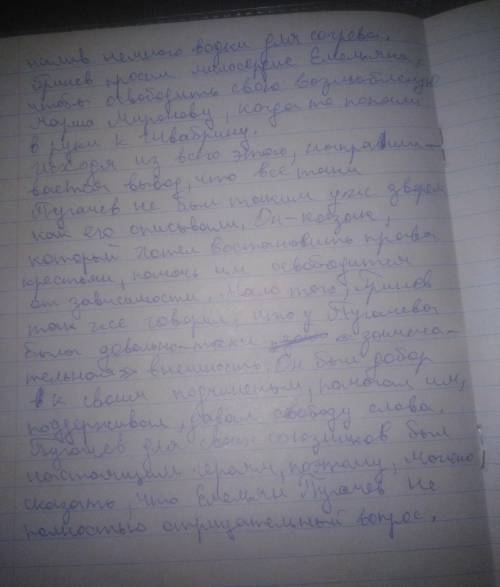 налив немного водки для согрева.
Гринев просит милосердие Емельяна,
чтобы освободить свою возлюбленную
Марию Миронову, когда та попала
в руки к Швабрину.
Исходя из всего этого, напраши-
вается вывод, что все таки
Пугачев не был таким уж зверем
как его описывали. Он - казак,
который хотел востановить права
крестьян, помочь им освободится
от зависимости. Мало того, Гринев
так же говорил, что у Пугачева
была довольно-таки «замеча-
тельная» внешность. Он был добр
к своим подчиненым, помогал им,
поддерживал, давал свободу слова.
Пугачев для своих союзников был
настоящим героям, поэтому, можно
сказать, что Емельян Пугачев не
полностью отрицательный вопрос.